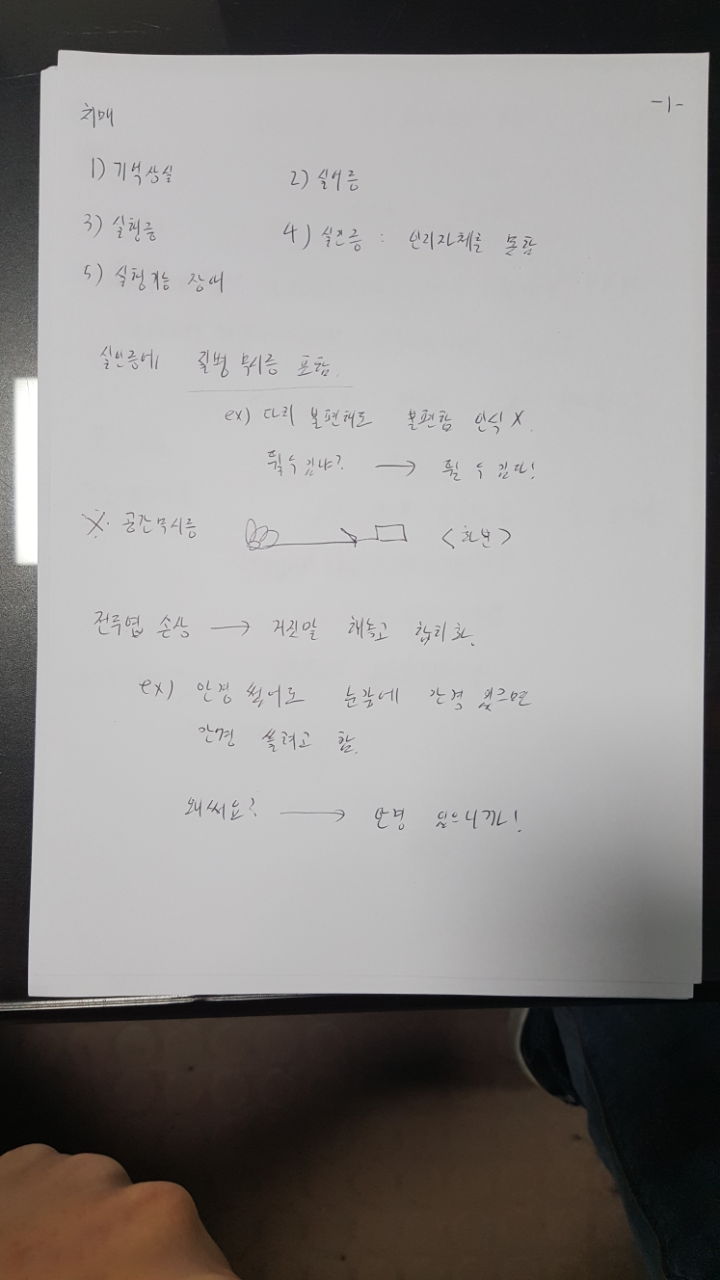 -1-
치매
1) 기억상실 2) 실어증
3) 실행증 4) 실인증 : 인지자체를 못함
5) 실행기능 장애
실인증에 질병 무시증 포함.
ex) 다리 불편해도 불편함 인식 X.
뛸 수 있나? → 뛸 수 있다!
※ 공간무시증 → < >
전두엽 손상 → 거짓말 해놓고 합리화.
ex) 안경 썼어도 눈앞에 안경 있으면
안경 쓸려고 함.
왜써요? → 안경 있으니까!